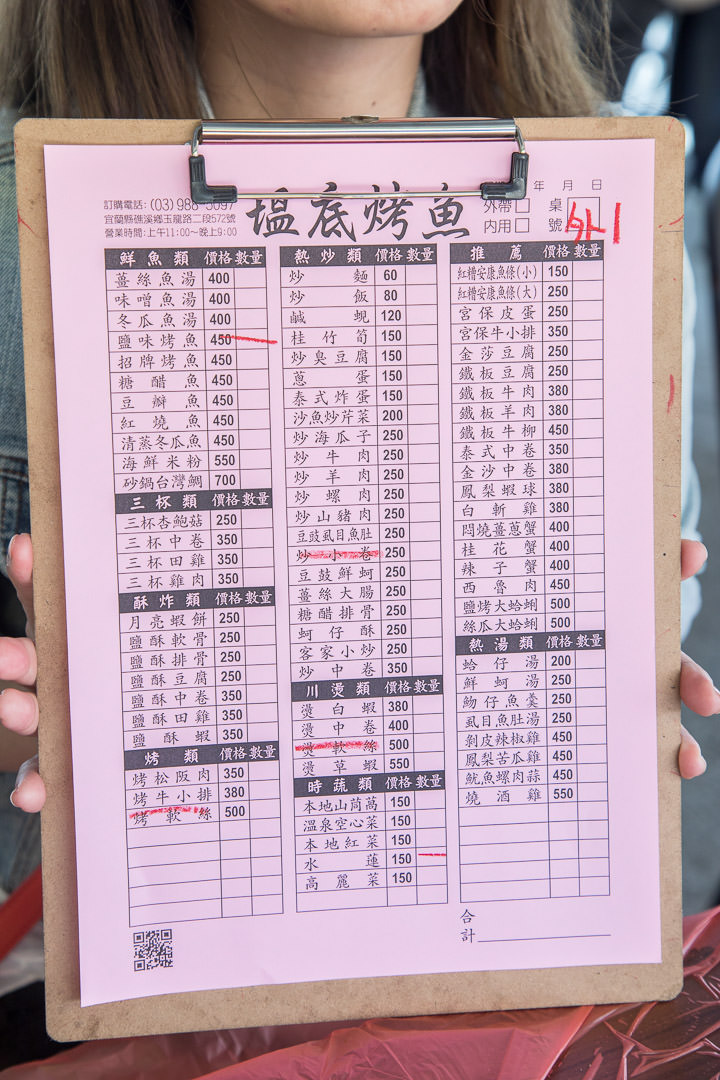 訂購電話: (03) 988-5097
宜蘭縣礁溪鄉玉龍路二段572號
營業時間:上午11:00～晚上9:00
塭底烤魚
年 月 日
外帶□ 桌
內用□ 號
外1
鮮魚類 價格 數量
薑絲魚湯 400
味噌魚湯 400
冬瓜魚湯 400
鹽味烤魚 450
招牌烤魚 450
糖醋魚 450
豆瓣魚 450
紅燒魚 450
清蒸冬瓜魚 450
海鮮米粉 550
砂鍋台灣鯛 700
三杯類 價格 數量
三杯杏鮑菇 250
三杯中卷 350
三杯田雞 350
三杯雞肉 350
酥炸類 價格 數量
月亮蝦餅 250
鹽酥軟骨 250
鹽酥排骨 250
鹽酥豆腐 250
鹽酥中卷 350
鹽酥田雞 350
鹽酥蝦 350
烤類 價格 數量
烤松阪肉 350
烤牛小排 380
烤軟絲 500
熱炒類 價格 數量
炒麵 60
炒飯 80
鹹蜆 120
桂竹筍 150
炒臭豆腐 150
蔥蛋 150
泰式炸蛋 150
沙魚炒芹菜 200
炒海瓜子 250
炒牛肉 250
炒羊肉 250
炒螺肉 250
炒山豬肉 250
豆豉虱目魚肚 250
炒小卷 250
豆鼓鮮蚵 250
薑絲大腸 250
糖醋排骨 250
蚵仔酥 250
客家小炒 250
炒中卷 350
川燙類 價格 數量
燙白蝦 380
燙中卷 400
燙軟絲 500
燙草蝦 550
時蔬類 價格 數量
本地山茼萵 150
溫泉空心菜 150
本地紅菜 150
水蓮 150
高麗菜 150
推薦 價格 數量
紅糟安康魚條(小) 150
紅糟安康魚條(大) 250
宮保皮蛋 250
宮保牛小排 350
金莎豆腐 250
鐵板豆腐 250
鐵板牛肉 380
鐵板羊肉 380
鐵板牛柳 450
泰式中卷 350
金沙中卷 380
鳳梨蝦球 380
白斬雞 380
悶燒薑蔥蟹 400
桂花蟹 400
辣子蟹 400
西魯肉 450
鹽烤大蛤蜊 500
絲瓜大蛤蜊 500
熱湯類 價格 數量
蛤仔湯 200
鮮蚵湯 250
魩仔魚羹 250
虱目魚肚湯 250
剝皮辣椒雞 450
鳳梨苦瓜雞 450
魷魚螺肉蒜 450
燒酒雞 550
合
計